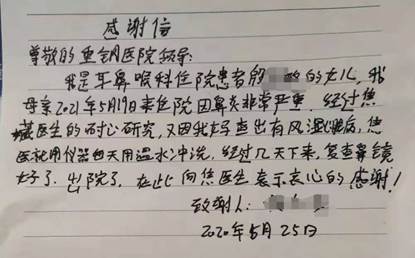 感谢信
尊敬的重钢医院领导:
我是耳鼻喉科住院患者的女儿,我
母亲2021年5月19日来住院因鼻炎非常严重.经过焦
医生的耐心研究,又因我母查出有风湿病,焦
医就用仪器白天用温水冲洗,经过几天下来,复查鼻镜
好了.出院了.在此向焦医生表示衷心的感谢!
致谢人:
2020年5月25日